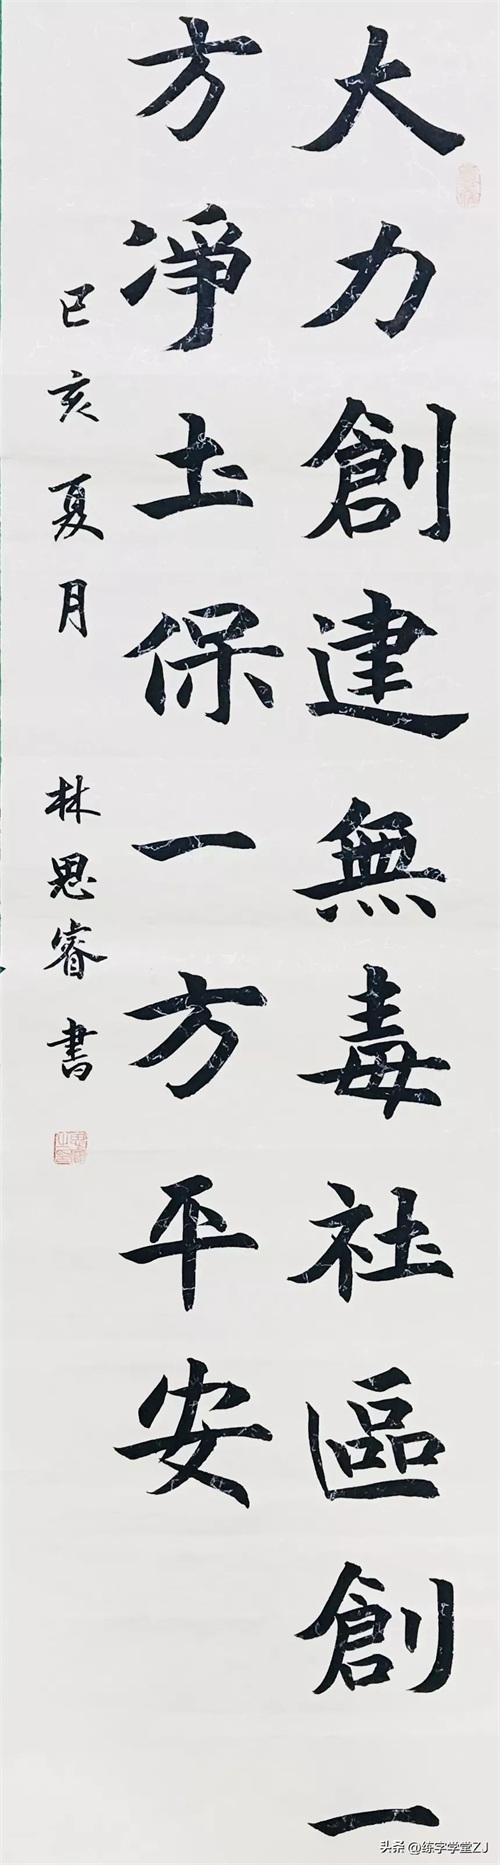 大力創建無毒社區創一
方淨土保一方平安
已亥夏月 林思睿書
头条 @练字学堂ZJ